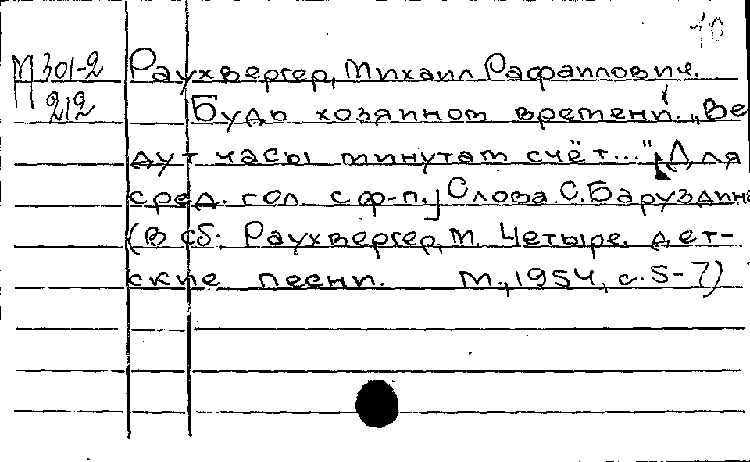 10
М 301-2 Раухвергер, Михаил Рафаилович.
212 Будь хозяином времени. „Ве
дут часы минутам счёт..." [Для
сред. гол. с ф-п.] Слова С. Баруздина
(в сб: Раухвергер, М. Четыре дет-
ские песни. М., 1954, с. 5-7)